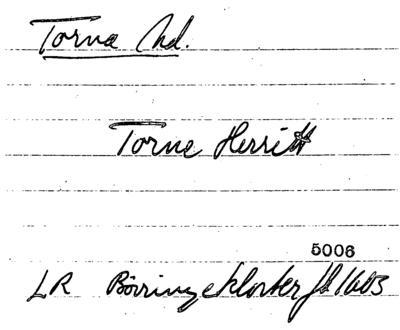 Torna hd.
Torne Herritt
5006
LR Börringe kloster jb 1603